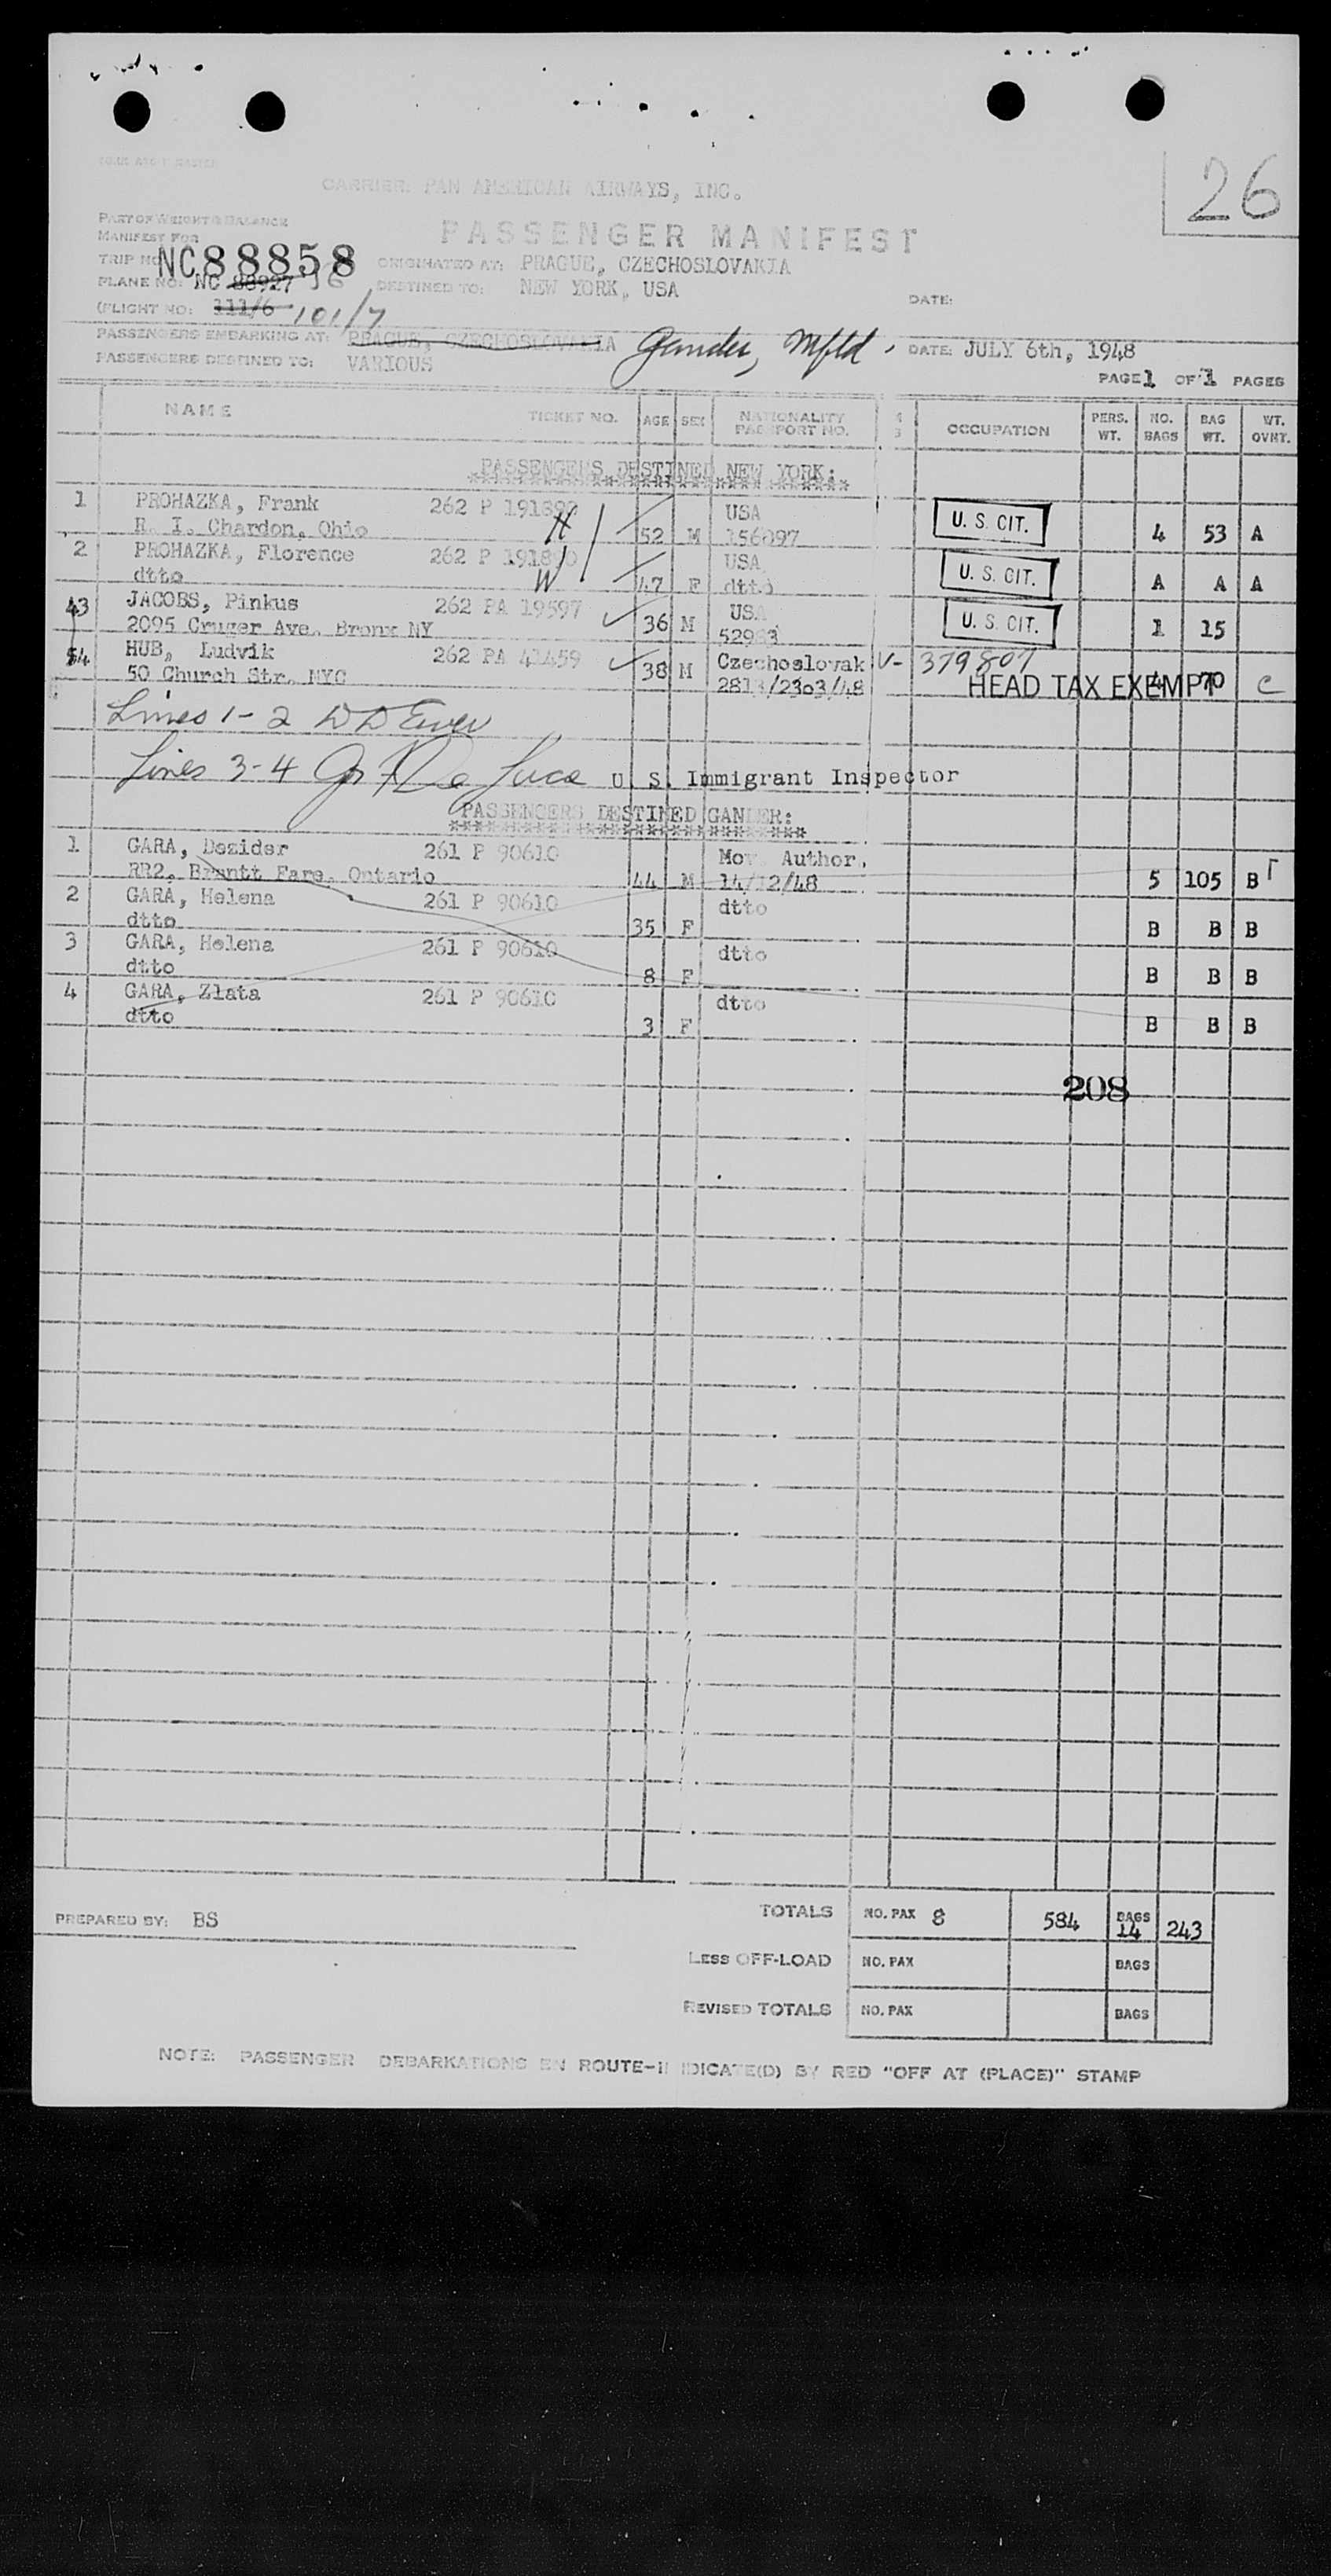 26
CARRIER: PAN AMERICAN AIRWAYS, INC.
PART OF WEIGHT & BALANCE
MANIFEST FOR
PASSENGER MANIFEST
TRIP NO. NC88858
ORIGINATED AT: PRAGUE, CZECHOSLOVAKIA
PLANE NO: NC 88927
DESTINED TO: NEW YORK, USA
DATE:
(FLIGHT NO: 111/6 101/7
PASSENGERS EMBARKING AT: PRAGUE, CZECHOSLOVAKIA Gander, Nfld. DATE: JULY 6th, 1948
PASSENGERS DESTINED TO: VARIOUS
PAGE 1 OF 1 PAGES
NAME TICKET NO. AGE SEX NATIONALITY PASSPORT NO. OCCUPATION PERS. WT. NO. BAGS BAG WT. WT. OVHT.
PASSENGERS DESTINED NEW YORK:
**************************************
1 PROHAZKA, Frank 262 P 191890 USA U. S. CIT.
R. I. Chardon, Ohio H 52 M 156097 4 53 A
2 PROHAZKA, Florence 262 P 191890 USA U. S. CIT.
dtto W 47 F dtto A A A
3 JACOBS, Pinkus 262 PA 19597 USA U. S. CIT.
2095 Cruger Ave. Bronx NY 36 M 1 15
4 HUB, Ludvik 262 PA 41459 Czechoslovak V- 379807
50 Church Str. NYC 38 M 2813/2303/48 HEAD TAX EXEMPT 4 70 C
Lines 1-2
Lines 3-4 U. S. Immigrant Inspector
PASSENGERS DESTINED GANDER:
***********************************
1 GARA, Dezider 261 P 90610 Mov. Author.
RR2, Brantt Fare, Ontario 44 M 14/12/48 5 105 B
2 GARA, Helena 261 P 90610 dtto
dtto 35 F B B B
3 GARA, Helena 261 P 90610 dtto
dtto 8 F B B B
4 GARA, Zlata 261 P 90610 dtto
dtto 3 F B B B
208
PREPARED BY: BS
TOTALS NO. PAX 8 584 BAGS 14 243
LESS OFF-LOAD NO. PAX BAGS
REVISED TOTALS NO. PAX BAGS
NOTE: PASSENGER DEBARKATIONS EN ROUTE-INDICATE(D) BY RED "OFF AT (PLACE)" STAMP